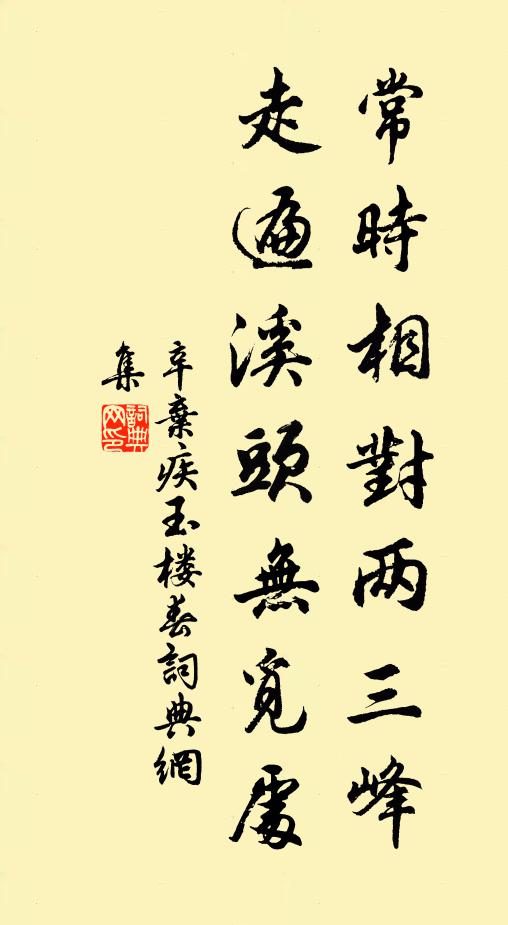 常時相對两三峰
走遍溪頭無覓處
辛棄疾玉楼春詞典網
集
詞典网印